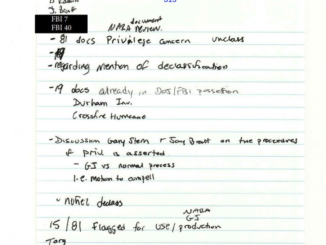 J. Bratt
FBI 7
FBI 40
document
NARA review.
- 81 docs Privilege concern unclass
- regarding mention of declassification
- 19 docs already in DOJ/FBI possession
Durham Inv.
Crossfire Hurricane
- Discussion Gary Stern & Jay Bratt on the procedures
if priv is asserted
- GJ vs normal process
i.e. Motion to compell
NARA
GJ
15/81 flagged for use/production